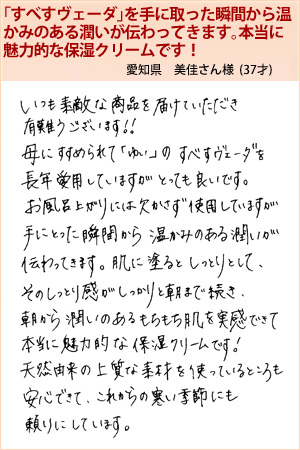 「すべすヴェーダ」を手に取った瞬間から温
かみのある潤いが伝わってきます。本当に
魅力的な保湿クリームです!
愛知県　美佳さん様 (37才)
いつも素敵な商品を届けていただき
有難うございます!!
母にすすめられて「ゆい」の すべすヴェーダを
長年愛用していますが とっても良いです。
お風呂上がりには欠かさず使用していますが
手にとった瞬間から 温かみのある潤いが
伝わってきます。肌に塗るとしっとりとして、
そのしっとり感がしっかりと朝まで続き、
朝から 潤いのあるもちもち肌を実感できて
本当に魅力的な保湿クリームです!
天然由来の上質な素材を使っているところも
安心できて、これからの寒い季節にも
頼りにしています。